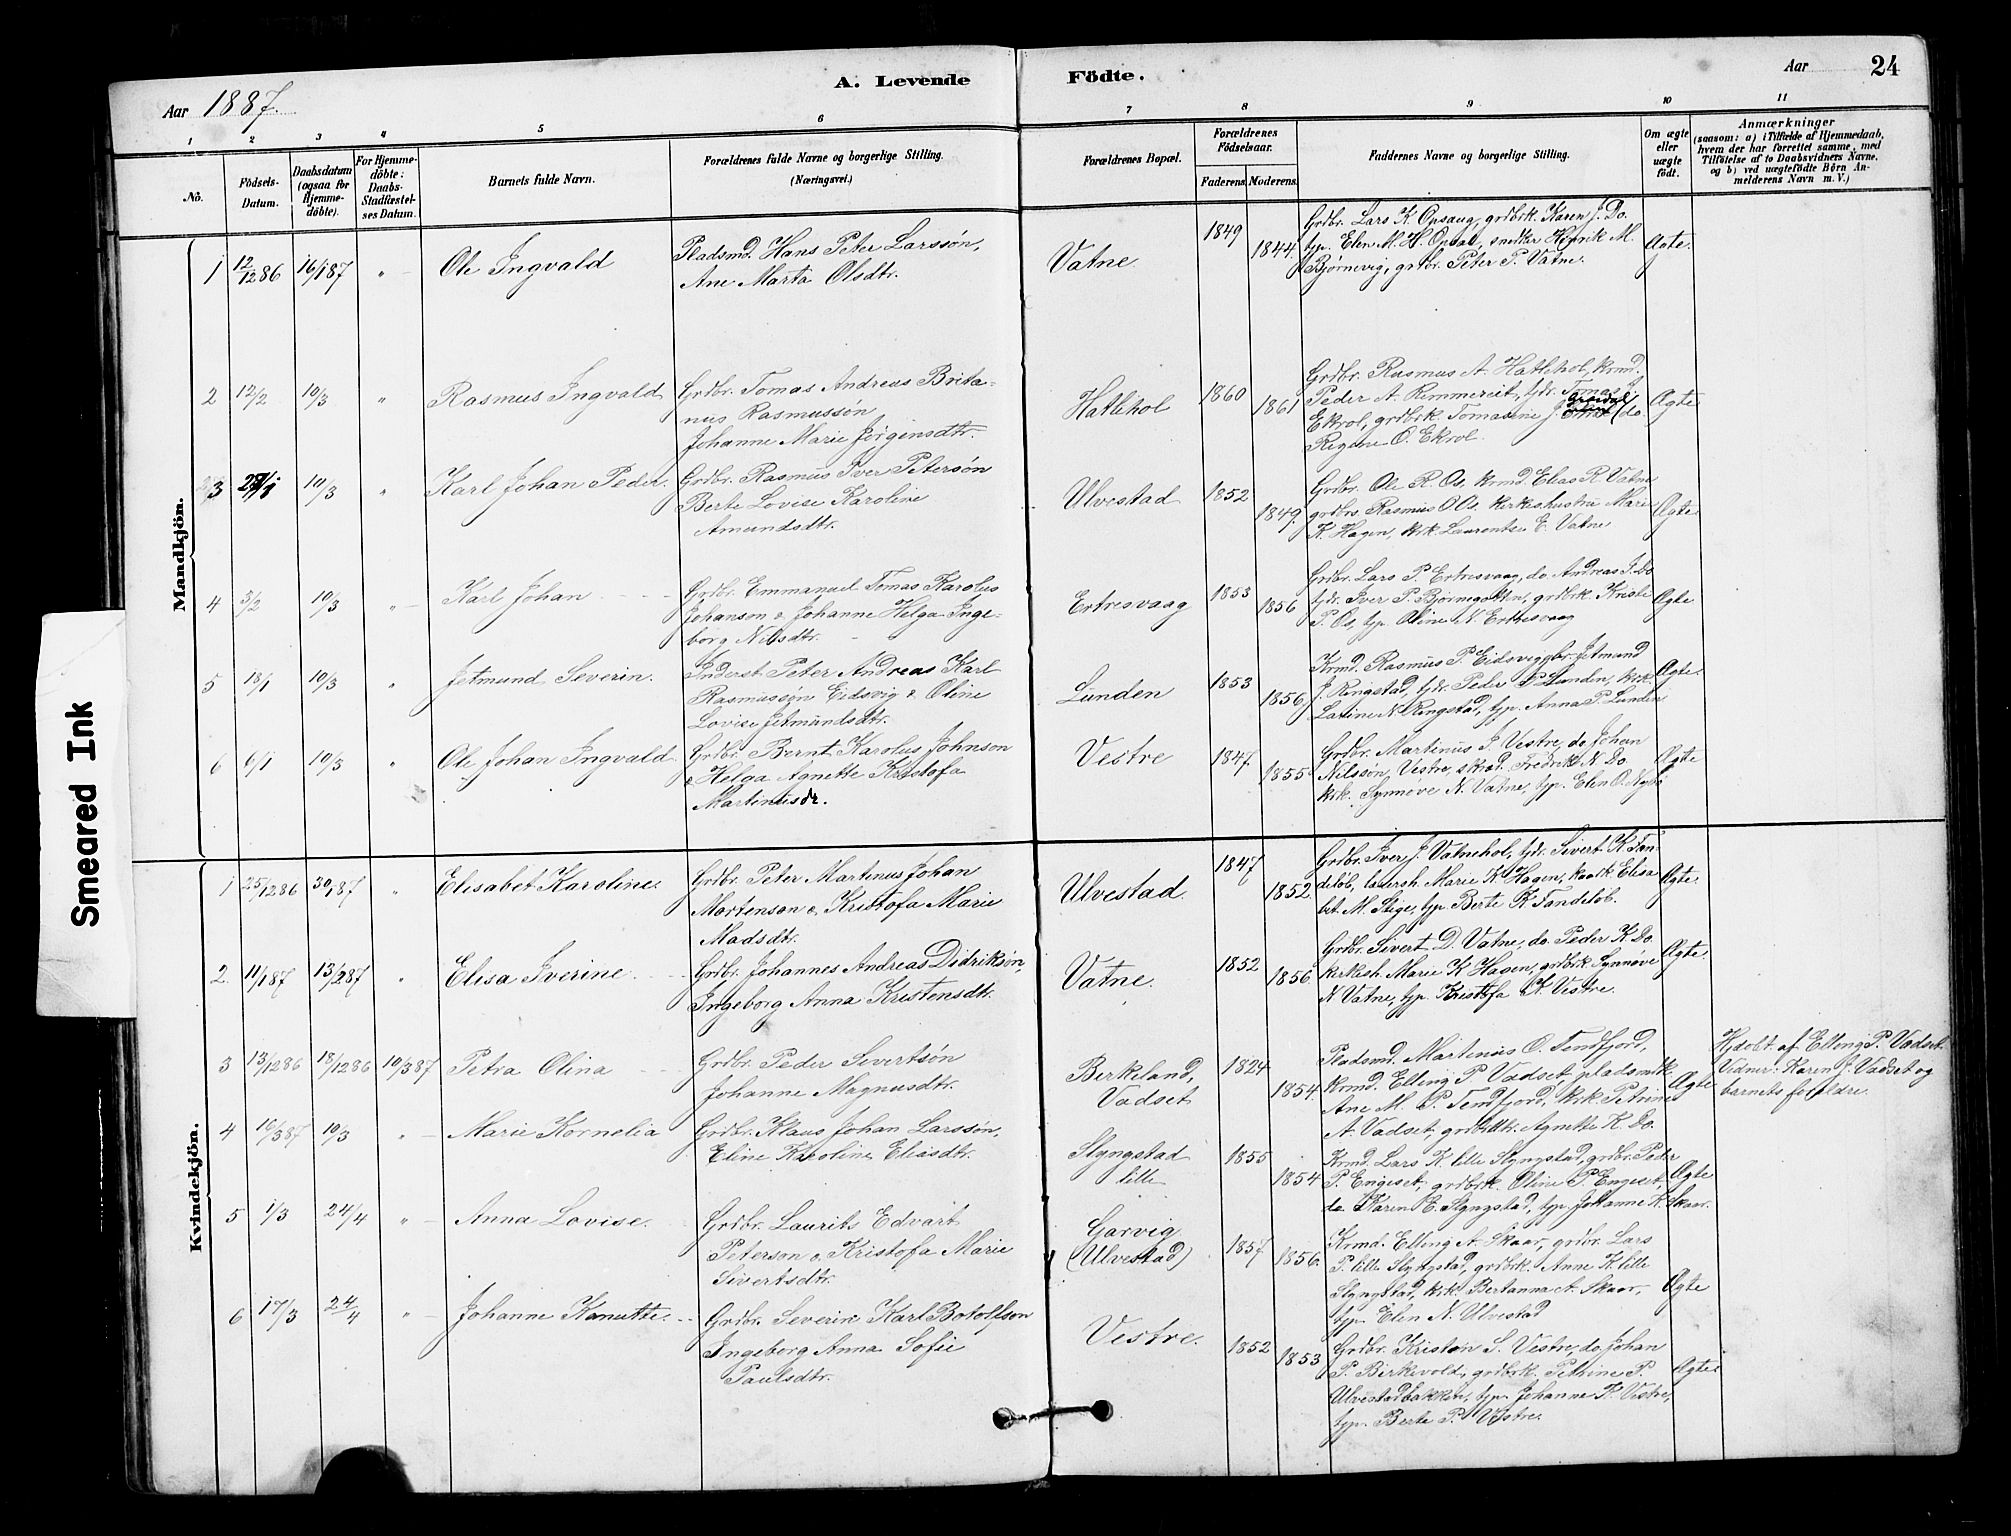 A. Levende Födte.
Aar 1887.
Aar 24
1 2 3 4 5 6 7 8 9 10 11
No.
Födsels-
Datum.
Daabsdatum
(ogsaa for
Hjemme-
döbte).
For Hjemme-
döbte:
Daabs-
Stadfæstel-
ses Datum.
Barnets fulde Navn.
Forældrenes fulde Navne og borgerlige Stilling.
(Næringsvei.)
Forældrenes Bopæl.
Forældrenes
Födselsaar.
Faderens. Moderens.
Faddernes Navne og borgerlige Stilling.
Om ægte
eller
uægte
födt.
Anmærkninger
(saasom: a) i Tilfælde af Hjemmedaab,
hvem der har forrettet samme, med
Tilföielse af to Daabsvidners Navne,
og b) ved uægtefödte Börn An-
melderens Navn m. V.)
Mandkjön.
1 12/12 86 16/1 87 " Ole Ingvald
Pladsmd. Hans Peter Larssön,
Ane Marta Olsdtr.
Vatne 1849 1844.
Grdbr. Lars K. Opsaug, grdbrk. Karen J. Do.
typ. Elen M. H. Opsal, snedker Henrik M.
Bjørnevig, grdbr. Peter P. Vatne.
Ægte.
2 12/2 10/3 " Rasmus Ingvald
Grdbr. Tomas Andreas Brita-
nus Rasmussön
Johanne Marie Jørgensdtr.
Hatlehol 1860 1861
Grdbr. Rasmus A. Hatlehol, krmd.
Peder A. Remmereit, fdr. Tomas J.
Ekrol, grdbrk. Tomasine J. do.
Regine O. Ekrol.
Ægte
3 10/3 " Karl Johan Peder.
Grdbr. Rasmus Iver Petersön
Berte Lovise Karoline
Amundsdtr.
Ulvestad 1852 1849.
Grdbr. Ole R. Os, krmd. Elias R. Vatne
grdbrs. Rasmus O. Os, kirkeshustru Marie
K. Hagen, krk. Laurentse E. Vatne
Ægte
4 3/2 10/3 " Karl Johan
Grdbr. Emmanuel Tomas Karolus
Johanson & Johanne Helga Inge-
borg Nilsdtr.
Ertresvaag 1853 1856
Grdbr. Lars P. Ertresvaag, do. Andreas J. Do
fdr. Iver P. Bjørnsgotten, grdbrk. Kriste
P. Os, typ. Oline N. Ertresvaag
Ægte
5 18/1 10/3 " Jetmund Severin.
Inderst Peter Andreas Karl
Rasmussøn Eidsvig & Oline
Lovise Jetmundsdtr.
Lunden 1853 1856
Krmd. Rasmus P. Eidsvig, gbr. Jetmund
J. Ringstad, fdr. Peder P. Lunden, krk.
Latine N. Ringstad, typ. Anna P. Lunden
Ægte.
6 6/1 10/3 " Ole Johan Ingvald
Grdbr. Bernt Karolus Johnson
& Helga Agnette Kristofa
Martinusdr.
Vestre 1847 1855
Grdbr. Martinus J. Vestre, do Johan
Nilssön, Vestre, skrad. Fredrik N. Do
krk. Synnøve N. Vatne, typ. Elen O. Nybø
Ægte
Kvindekjön.
1 25/12 86 30/1 87 " Elisabet Karoline.
Grdbr. Peter Martinus Johan
Mortenson & Kristofa Marie
Madsdtr.
Ulvestad. 1847 1852.
Grdbr. Iver J. Vatnehol, fdr. Sivert K. Tan-
deløb, lærersh. Marie K. Hagen, kaark. Elisa
bet M. Stige, typ. Berte K. Tandeløb.
Ægte.
2. 11/1 87 13/2 87 " Elisa Iverine
Grdbr. Johannes Andreas Didriksøn,
Ingeborg Anna Kristensdtr.
Vatne. 1852 1856.
Grdbr. Sivert D. Vatne, do. Peder K. Do.
kirkesh. Marie K. Hagen, grdbrk Synnøve
N. Vatne, typ. Kristofa K. Vestre.
Ægte.
3 13/12 86 18/12 86 10/3 87 Petra Olina
Grdbr. Peder Sivertsön
Johanne Magnusdtr.
Berkeland,
Vadset 1824 1854.
Pladsmd. Martinus O. Tendfjord,
krmd. Elling P. Vadset, pladsmdk.
Ane M. P. Tendfjord, krk. Petrine
A. Vadset, grdbrdtr. Agnette K. Do.
Ægte
Hjdøbt. af Elling P. Vadset.
Vidner: Karen J. Vadset og
barnets forældre.
4 10/3 87 10/3 " Marie Kornelia
Grdbr. Klaus Johan Larssön,
Eline Karoline Eliasdtr.
Slyngstad
lille 1855 1854
Krmd. Lars K. lille Slyngstad, grdbr. Peder
P. Engeset, grdbrk. Oline P. Engeset,
do Karen E. Slyngstad, typ. Johanne K. Skaar.
Ægte
5 1/3 24/4 " Anna Lovise.
Grdbr. Laurits Edvart
Peterson & Kristofa Marie
Sivertsdtr.
Garvig
(Ulvestad) 1857 1856.
Krmd. Elling A. Skaar, grdbr. Lars
P. lille Slyngstad, grdbrk. Anne K. lille
Slyngstad, krk. Bertanna A. Skaar,
typ. Elen N. Ulvestad
Ægte
6 17/3 24/4 " Johanne Kanutte.
Grdbr. Severin Karl Botolfson
Ingeborg Anna Sofie
Paulsdtr.
Vestre. 1852 1853
Grdbr. Kristen S. Vestre, do Johan
P. Birkevold, grdbrk. Pethine P.
Ulvestadbakken, typ. Johanne K. Vestre,
typ. Berte P. Vestre.
Ægte
Smeared Ink